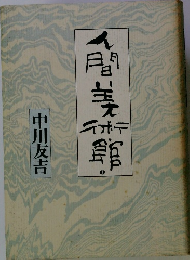 人間美術館
中川友吉